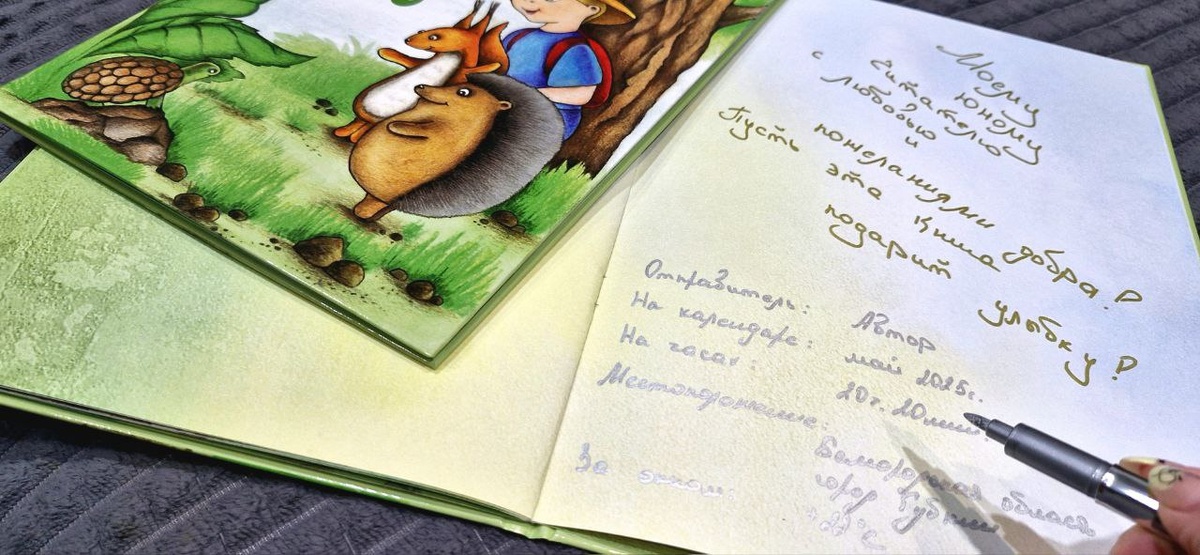 Моему
юному
читателю
с любовью
и
пожеланиями добра!
Пусть эта книга
подарит улыбку!
Отправитель: Автор
На календаре: май 2025г.
На часах: 20ч. 20мин.
Местонахождение: Белгородская область
город Губкин
За окном: +23°С